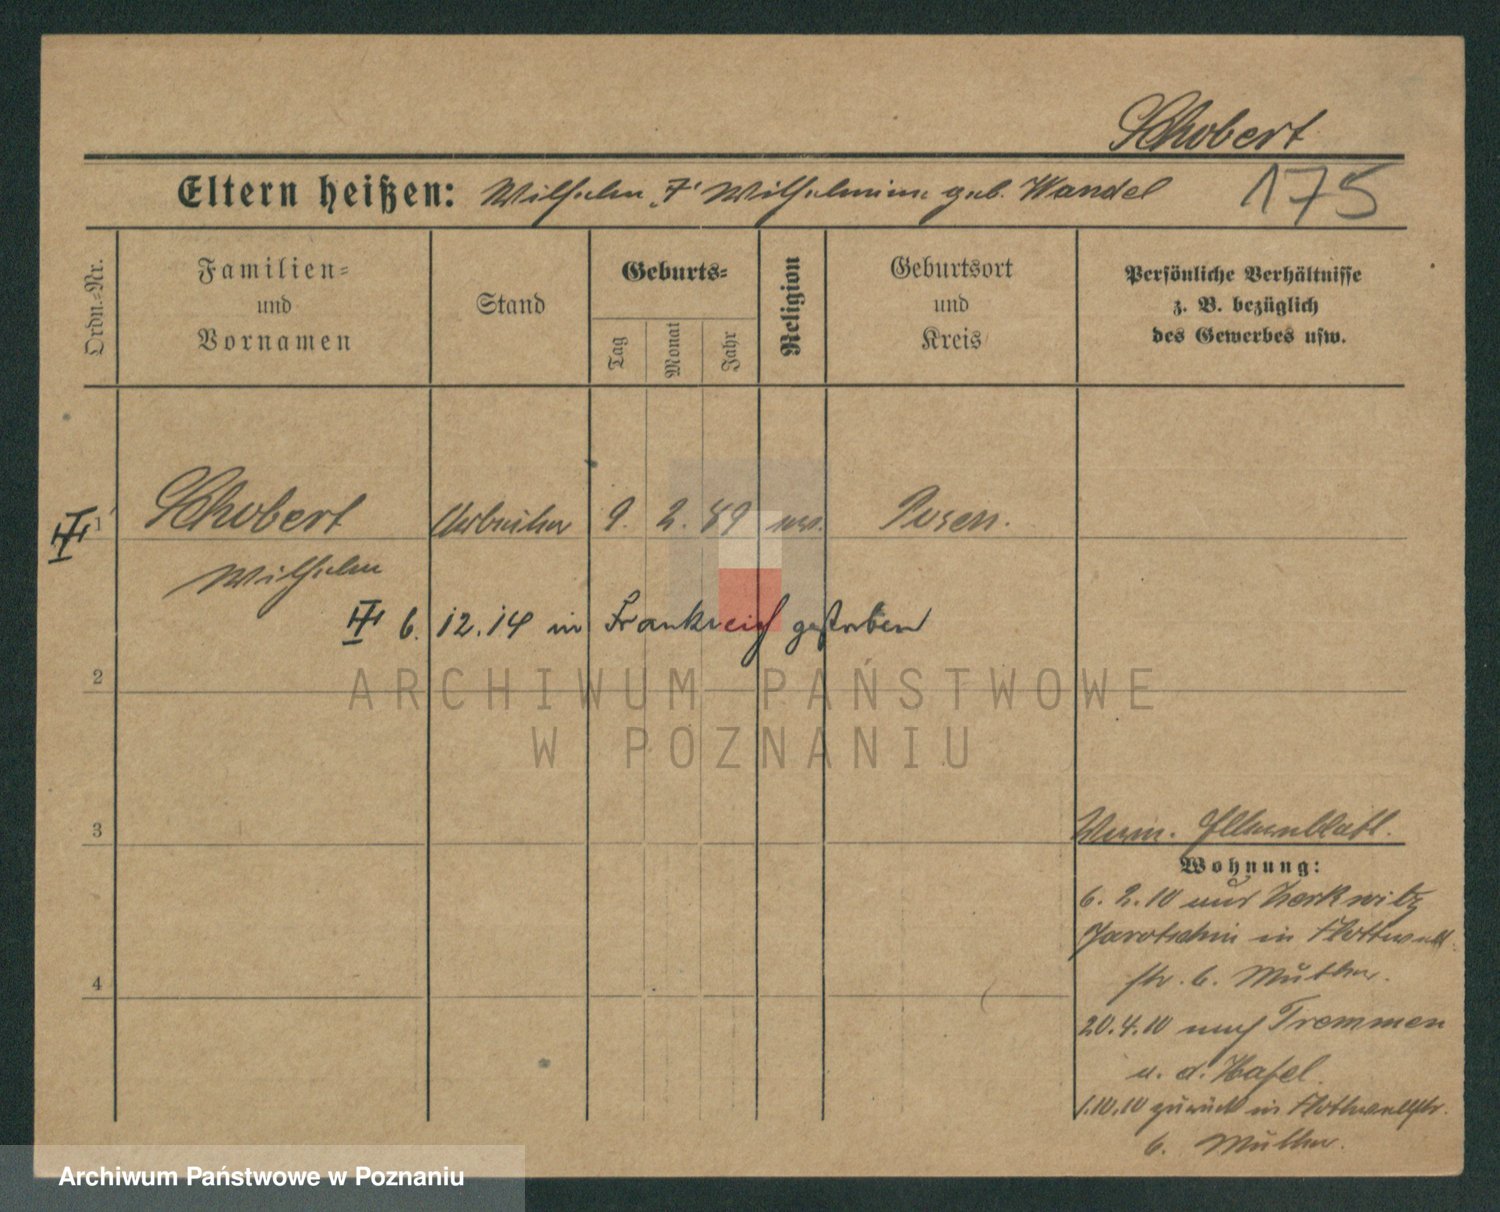 Schobert
Eltern heißen: Wilhelm u. Wilhelmine geb. Wandel 175
Ordn.-Nr.
Familien- und Vornamen
Stand
Geburts-
Tag
Monat
Jahr
Religion
Geburtsort und Kreis
Persönliche Verhältnisse
z. B. bezüglich
des Gewerbes usw.
1 Schobert Arbeiter 9. 2. 89 Posen.
Wilhelm
6. 12. 14 in Frankreich gestorben
2
ARCHIWUM PAŃSTWOWE
W POZNANIU
3
Elternblatt.
Wohnung:
6. 2. 10 aus Zerkwitz
Jarotschin in Flottwell
4
str. 6. Mutter.
20. 4. 10 nach Tremmen
a. d. Hafel.
1.10.10 zurück in Flottwellstr.
6. Mutter.
Archiwum Państwowe w Poznaniu